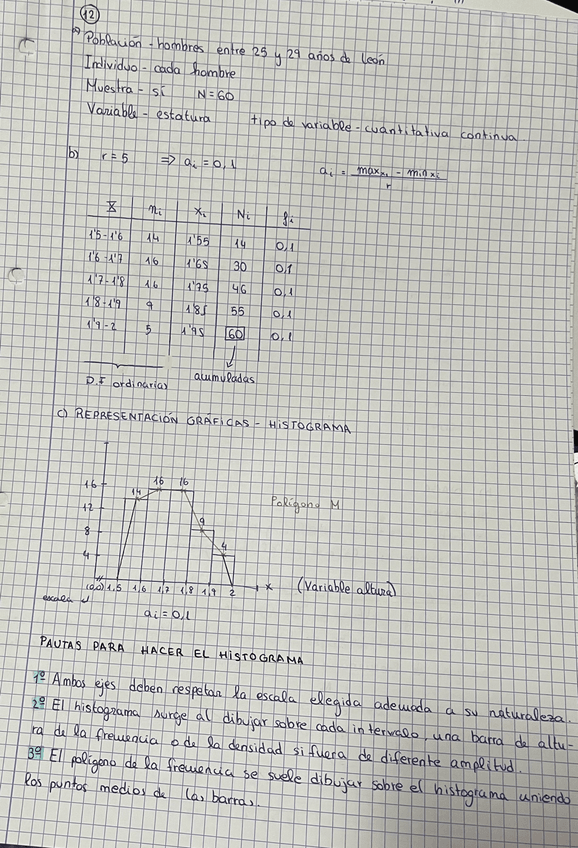 12
a) Población - hombres entre 25 y 29 años de León
Individuo - cada hombre
Muestra - sí N=60
Variable - estatura tipo de variable - cuantitativa continua
b) r = 5 ⇒ ai = 0,1 ai = maxxi - minxi / r
X ni xi Ni
1'5-1'6 14 1'55 14 0,1
1'6-1'7 16 1'65 30 0,1
1'7-1'8 16 1'75 46 0,1
1'8-1'9 9 1'85 55 0,1
1'9-2 5 1'95 60 0,1
D.F ordinarias acumuladas
c) REPRESENTACIÓN GRÁFICAS - HISTOGRAMA
16
12
8
4
14 16 16 9 4
Polígono M
(0,0) 1,5 1,6 1,7 1,8 1,9 2 x (Variable altura)
escala
ai = 0,1
PAUTAS PARA HACER EL HISTOGRAMA
1º Ambos ejes deben respetar la escala elegida adecuada a su naturaleza.
2º El histograma surge al dibujar sobre cada intervalo, una barra de altu-
ra de la frecuencia o de la densidad si fuera de diferente amplitud.
3º El polígono de la frecuencia se suele dibujar sobre el histograma uniendo
los puntos medios de las barras.